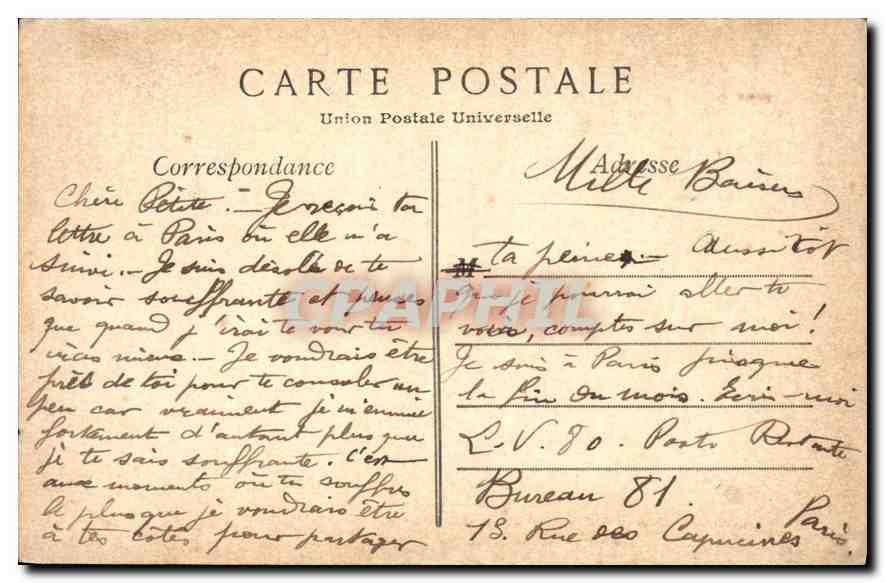 CARTE POSTALE
Union Postale Universelle
Correspondance
Chère Petite. - Je reçois ta
lettre à Paris où elle m'a
suivi. - Je suis désolé de te
savoir souffrante et
que quand j'irai te voir tu
iras mieux. - Je voudrais être
près de toi pour te consoler un
peu car vraiment je m'ennuie
fortement d'autant plus que
je te sais souffrante. C'est
aux moments où tu souffres
le plus que je voudrais être
à tes côtés pour partager
Adresse
Mille Baisers
M
ta peine. - Aussitôt
que je pourrai aller te
voir, comptes sur moi!
Je suis à Paris jusque
la fin du mois. Ecris-moi
L.V. 80. Poste Restante
Bureau 81.
13. Rue des Capucines Paris.
CPAPHIL